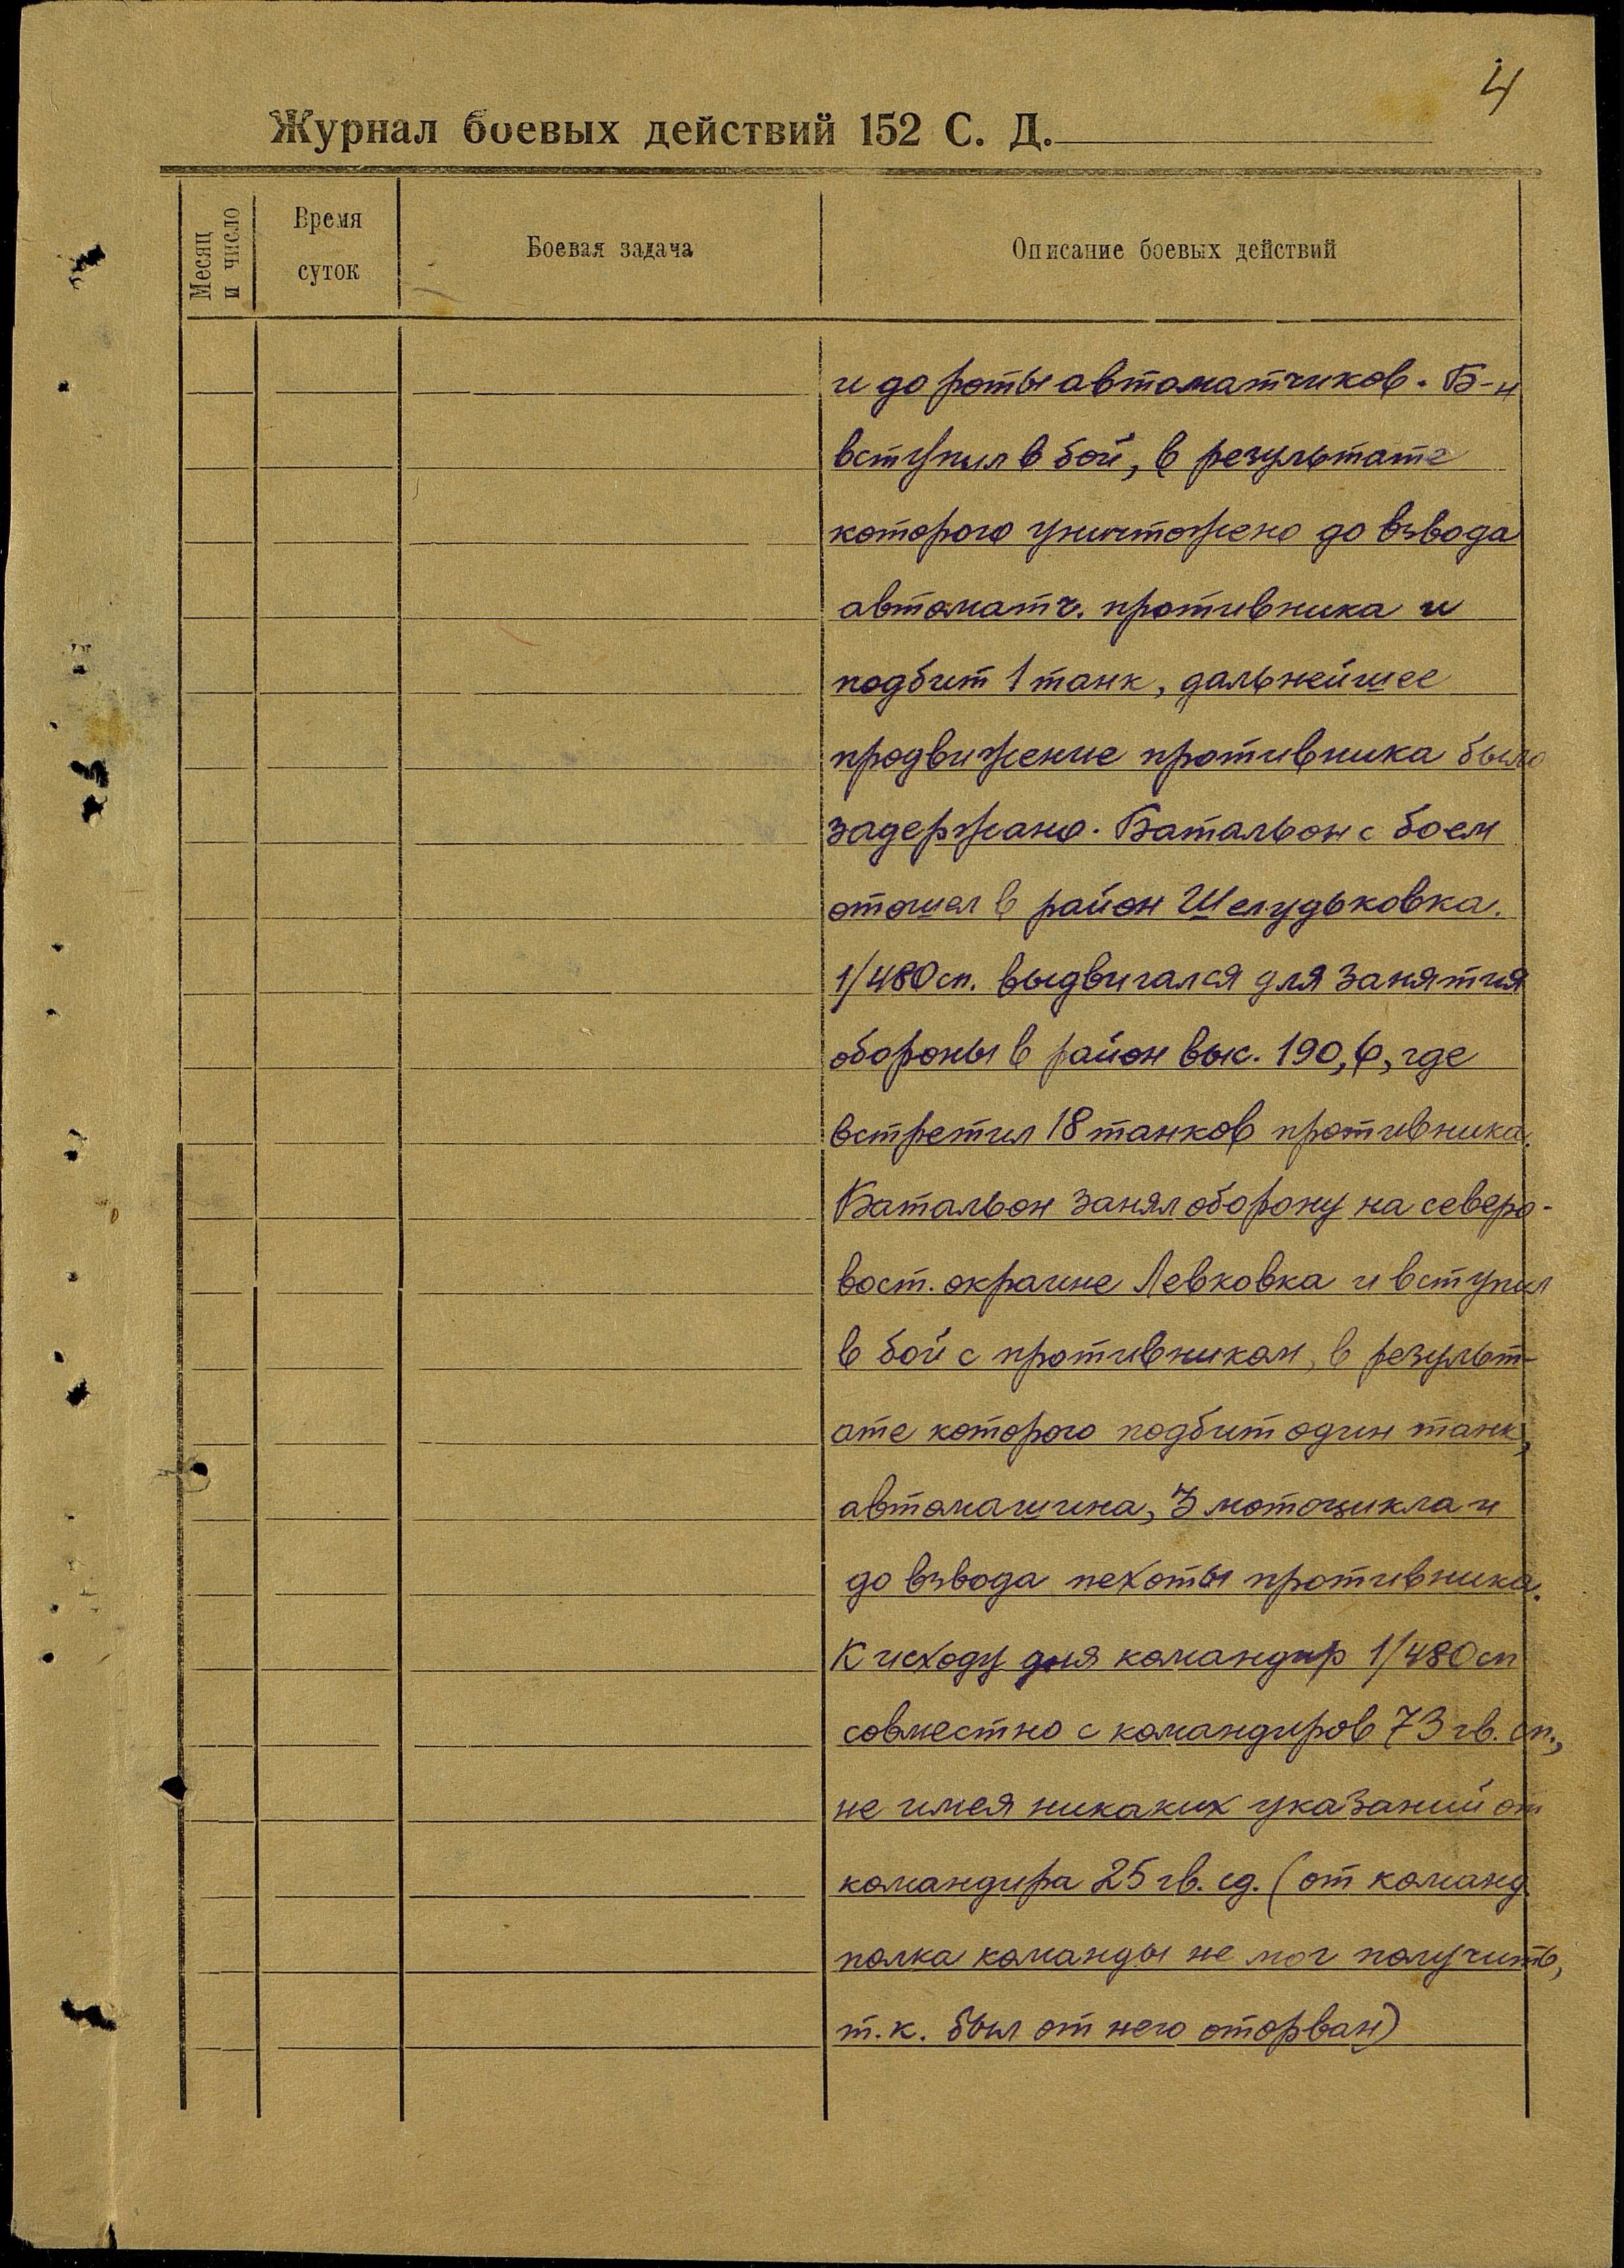 4
Журнал боевых действий 152 С. Д.
Месяц и число
Время суток
Боевая задача
Описание боевых действий
и до роты автоматчиков. Б-н
вступил в бой, в результате
которого уничтожено до взвода
автоматч. противника и
подбит 1 танк, дальнейшее
продвижение противника было
задержано. Батальон с боем
отошел в район Шелудьковка.
1/480 сп. выдвигался для занятия
обороны в район выс. 190,6, где
встретил 18 танков противника.
Батальон занял оборону на северо-
вост. окраине Левковка и вступил
в бой с противником, в результ-
ате которого подбит один танк,
автомашина, 3 мотоцикла и
до взвода пехоты противника.
К исходу дня командир 1/480 сп
совместно с командиров 73 гв. сп.,
не имея никаких указаний от
командира 25 гв. сд. (от команд.
полка команды не мог получить,
т.к. был от него оторван)